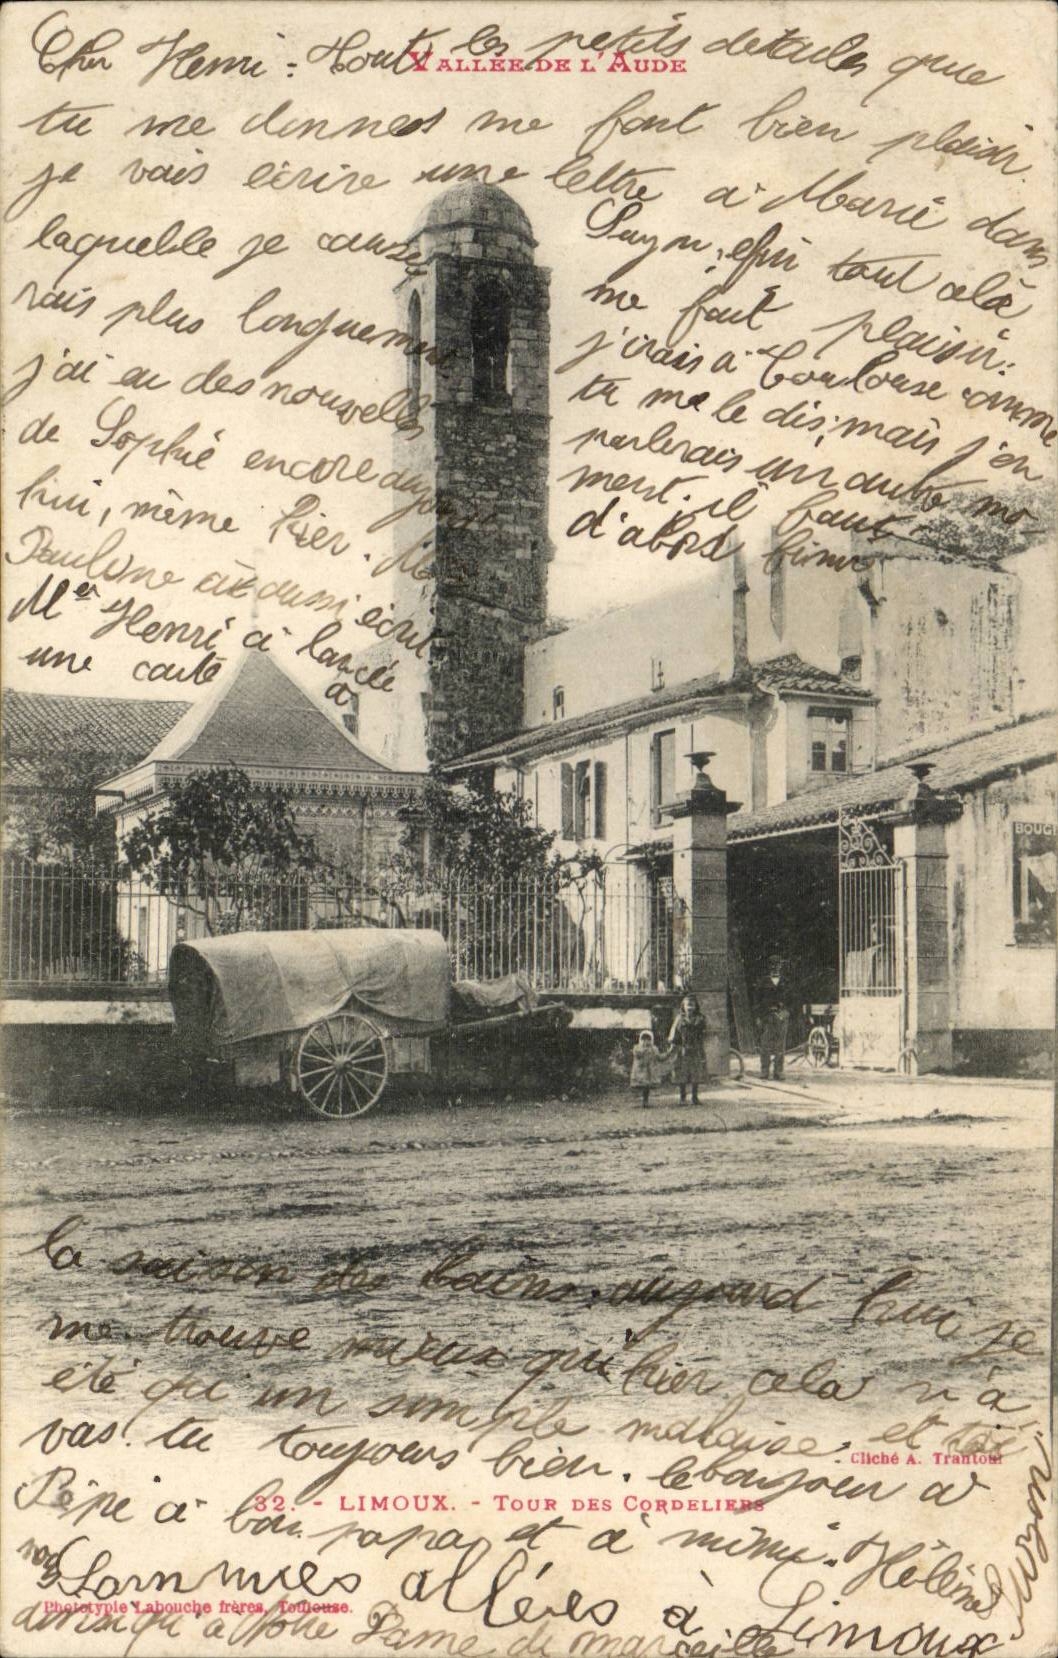 Cher Henri : Tout les petits details que
VALLÉE DE L'AUDE
tu me donnes me font bien plaisir.
je vais écrire une lettre à Marie dans
laquelle je cause
rais plus longuement
j'ai eu des nouvelles
de Sophie encore aujourd
hui, même hier.
Pauline à aussi écrit
Henri à
une carte à
tout celà
me fait plaisir.
j'irais à Toulouse comme
tu me le dis; mais j'en
parlerais un autre mo-
ment. il faut
d'abord finir
BOUGI
la saison des bains. aujourd hui je
me trouve mieux qu'hier cela n'à
été qu'un simple malaise. et toi
vas tu toujours bien. le bonjour à
Cliché A. Trantoul
Pépé à bon papa et à mimi. Hélène
32. - LIMOUX. - TOUR DES CORDELIERS
nous Sommes allées à Limoux
Phototypie Labouche frères, Toulouse.
ainsi qu'à Notre Dame de marceille